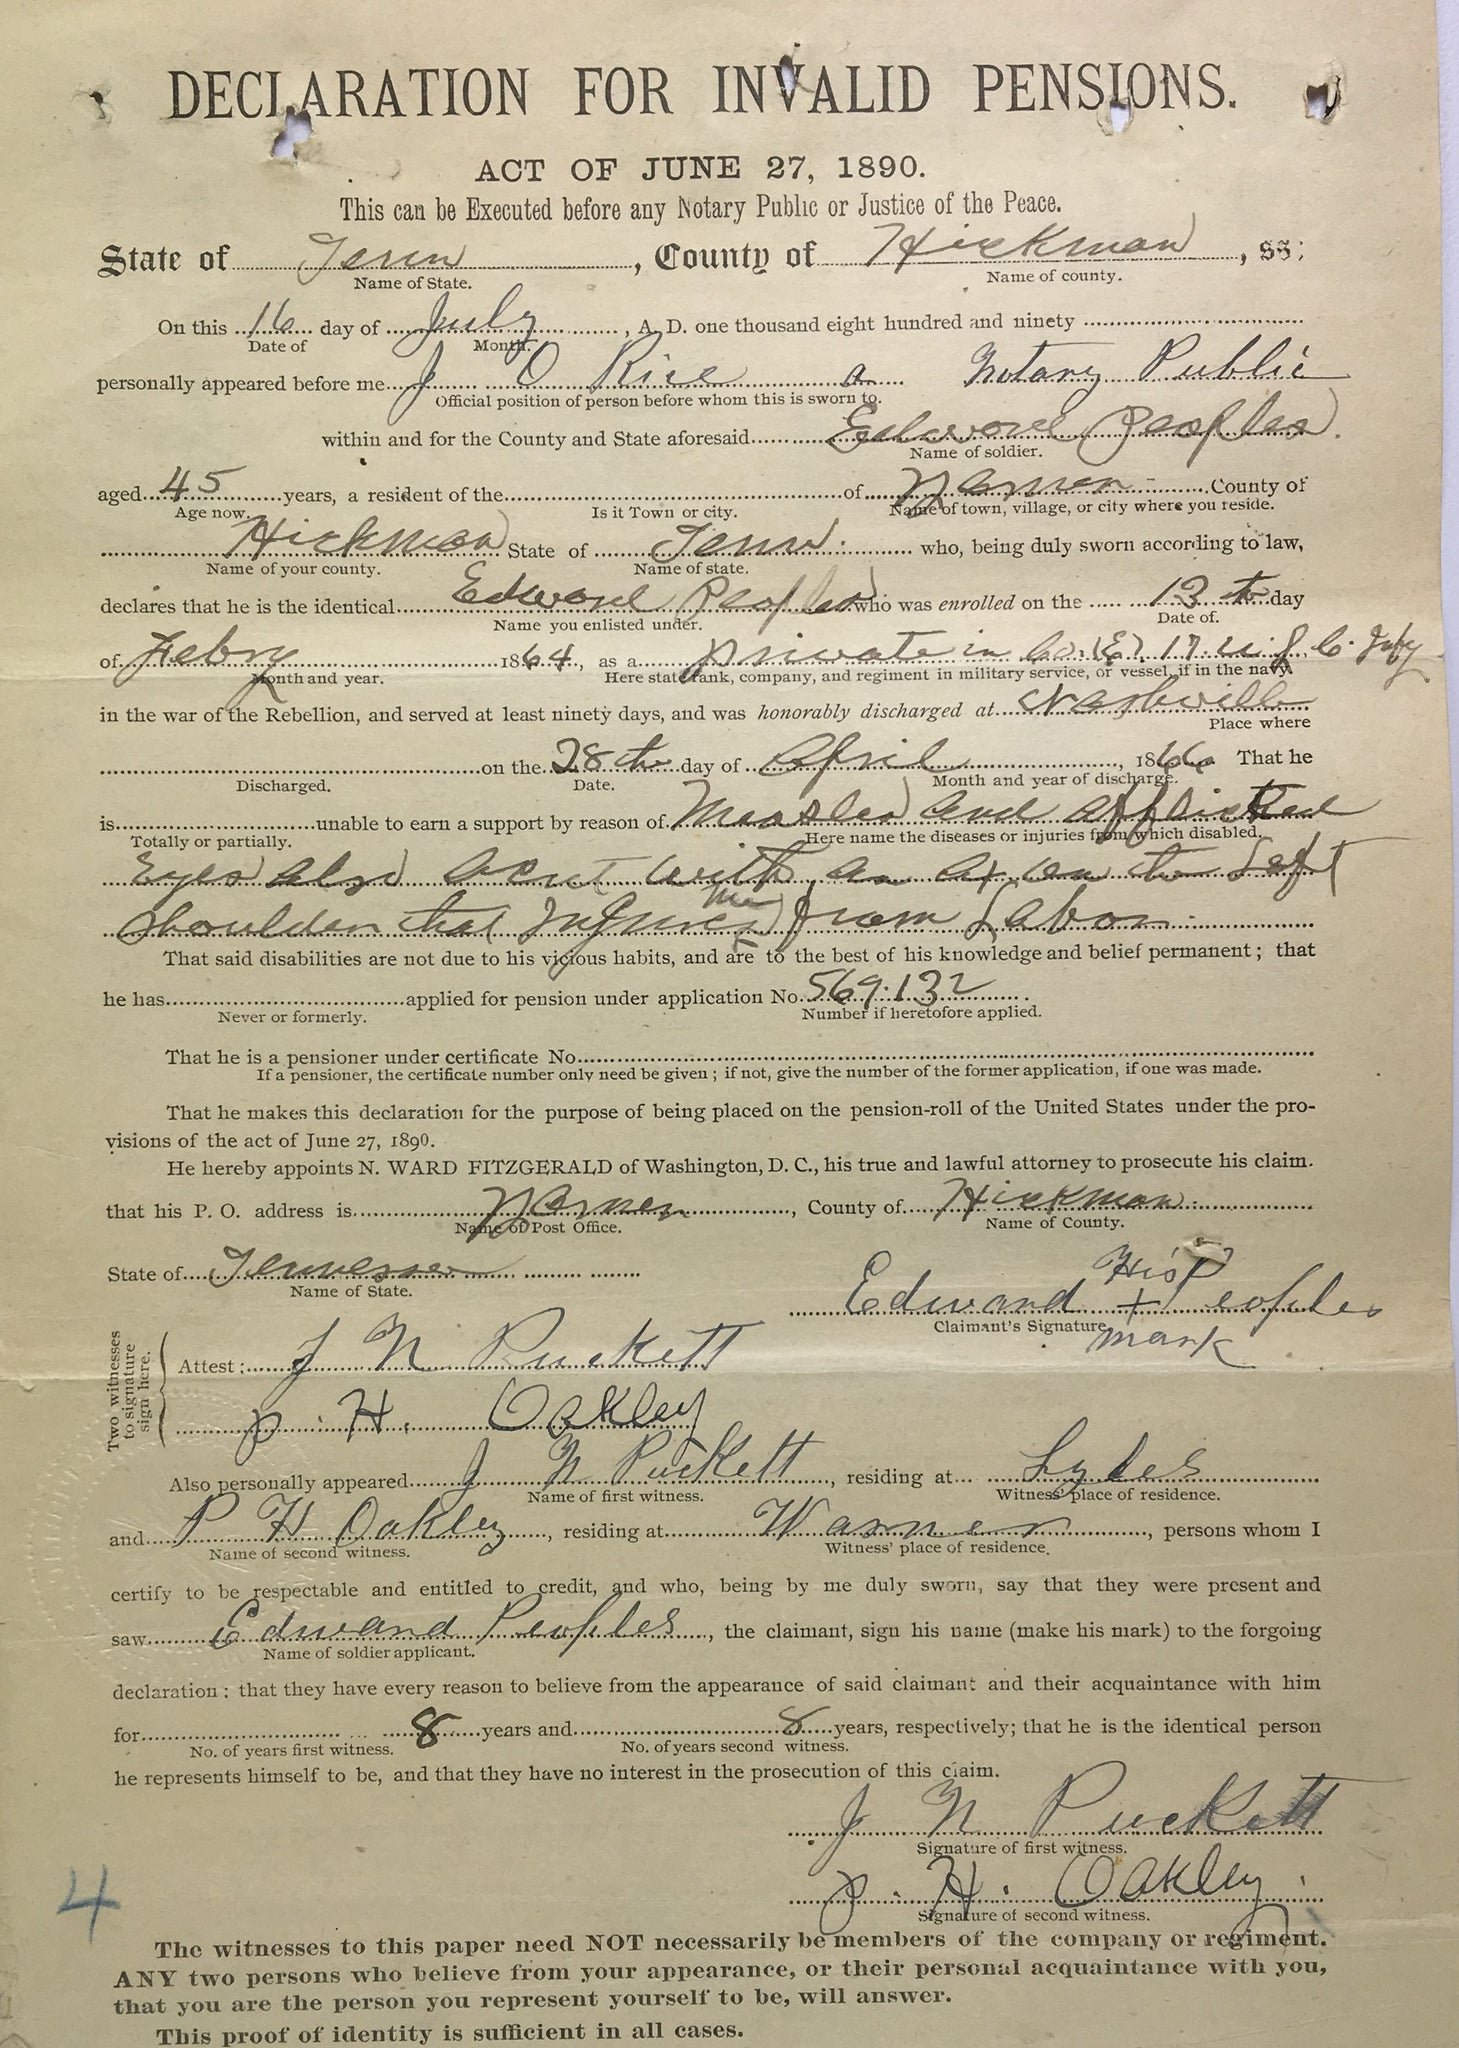 DECLARATION FOR INVALID PENSIONS.
ACT OF JUNE 27, 1890.
This can be Executed before any Notary Public or Justice of the Peace.
State of Tenn, County of Hickman, SS:
Name of State. Name of county.
On this 16 day of July, A. D. one thousand eight hundred and ninety
Date of Month.
personally appeared before me J O Rice a Notary Public
Official position of person before whom this is sworn to.
within and for the County and State aforesaid Edward Peoples.
Name of soldier.
aged 45 years, a resident of the of Warner County of
Age now. Is it Town or city. Name of town, village, or city where you reside.
Hickman State of Tenn. who, being duly sworn according to law,
Name of your county. Name of state.
declares that he is the identical Edward Peoples who was enrolled on the 13th day
Name you enlisted under. Date of.
of Febry 1864, as a private in Co. (E) 17 U S C Infy
Month and year. Here state rank, company, and regiment in military service, or vessel, if in the navy.
in the war of the Rebellion, and served at least ninety days, and was honorably discharged at Nashville
Place where
on the 28th day of April, 1866 That he
Discharged. Date. Month and year of discharge.
is unable to earn a support by reason of Measles and afflicted
Totally or partially. Here name the diseases or injuries from which disabled.
Eyes also a cut with an ax on the Left
Shoulder that Injures me from Labor.
That said disabilities are not due to his vicious habits, and are to the best of his knowledge and belief permanent; that
he has applied for pension under application No. 569.132.
Never or formerly. Number if heretofore applied.
That he is a pensioner under certificate No.
If a pensioner, the certificate number only need be given; if not, give the number of the former application, if one was made.
That he makes this declaration for the purpose of being placed on the pension-roll of the United States under the pro-
visions of the act of June 27, 1890.
He hereby appoints N. WARD FITZGERALD of Washington, D. C., his true and lawful attorney to prosecute his claim.
that his P. O. address is Warner, County of Hickman
Name of Post Office. Name of County.
State of Tennessee
Name of State.
His
Edward + Peoples
Claimant's Signature
mark
Two witnesses to signature sign here.
Attest: J N Puckett
P. H. Oakley
Also personally appeared J N Puckett, residing at Lyles
Name of first witness. Witness' place of residence.
and P H Oakley, residing at Warner, persons whom I
Name of second witness. Witness' place of residence.
certify to be respectable and entitled to credit, and who, being by me duly sworn, say that they were present and
saw Edward Peoples, the claimant, sign his name (make his mark) to the forgoing
Name of soldier applicant.
declaration; that they have every reason to believe from the appearance of said claimant and their acquaintance with him
for 8 years and 8 years, respectively; that he is the identical person
No. of years first witness. No. of years second witness.
he represents himself to be, and that they have no interest in the prosecution of this claim.
J N Puckett
Signature of first witness.
P. H. Oakley.
Signature of second witness.
4
The witnesses to this paper need NOT necessarily be members of the company or regiment.
ANY two persons who believe from your appearance, or their personal acquaintance with you,
that you are the person you represent yourself to be, will answer.
This proof of identity is sufficient in all cases.